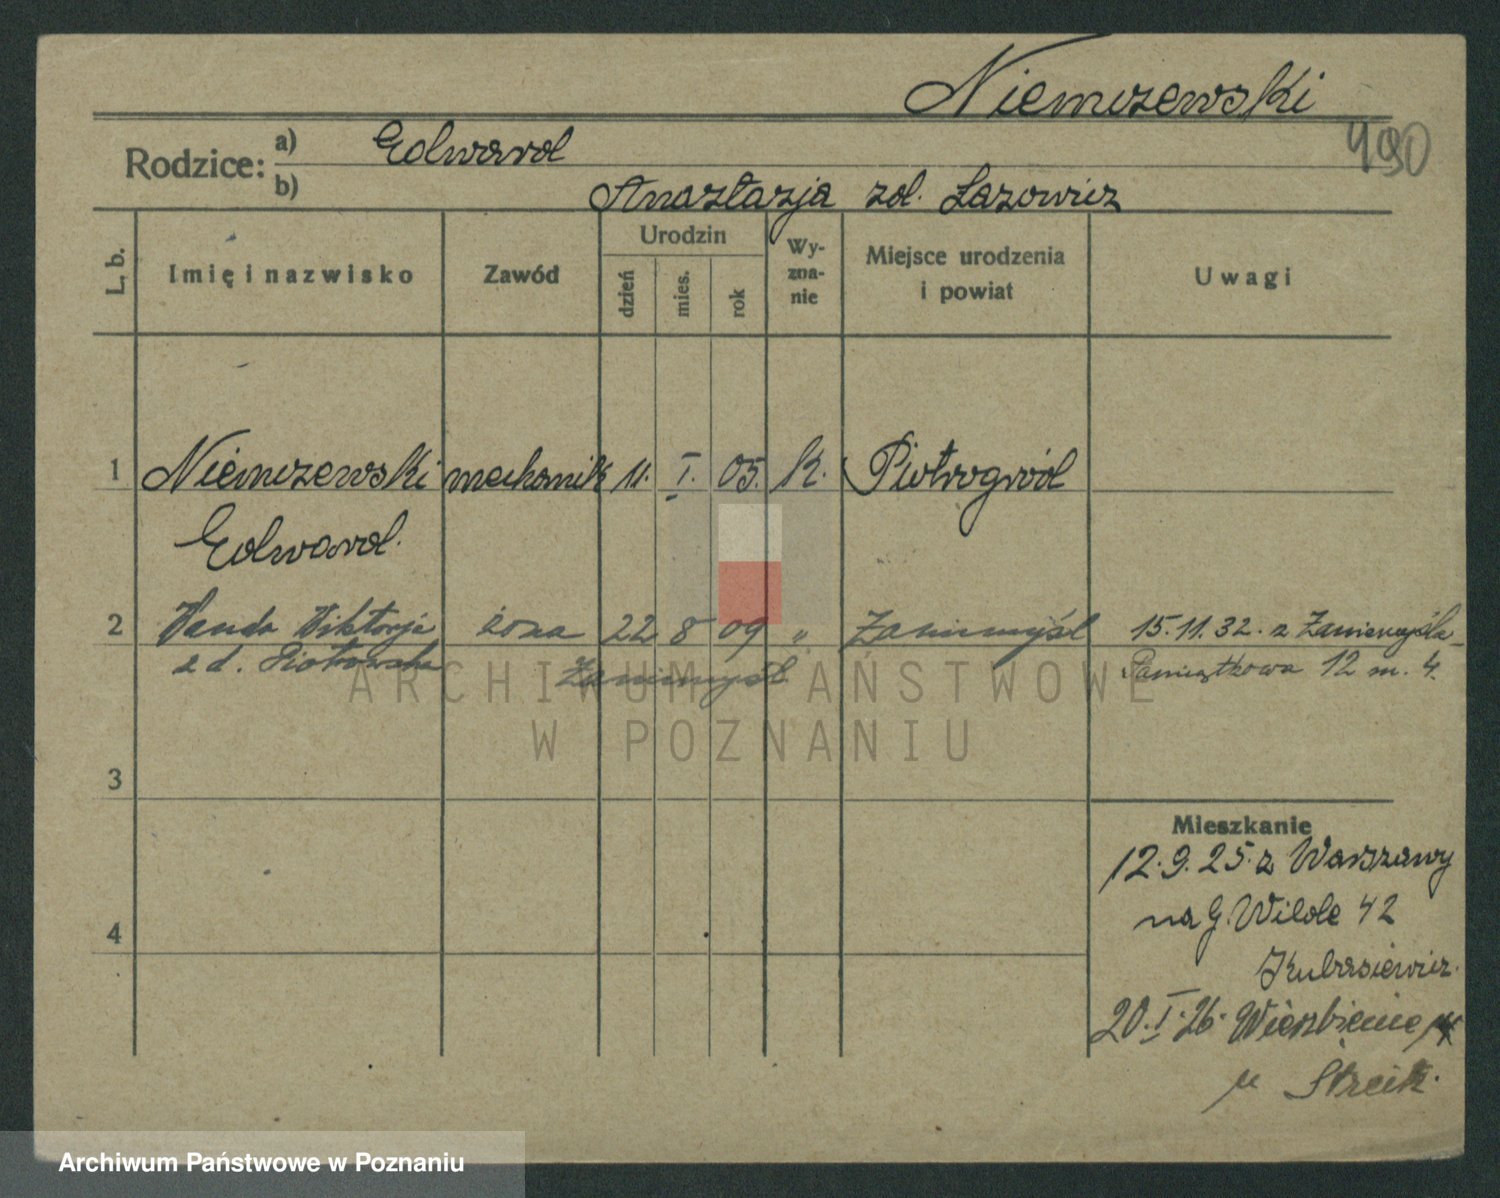 Niemczewski
490
Rodzice: a) Edward
b) Anastazja zd. Lazowicz
L. b. Imię i nazwisko Zawód Urodzin dzień mies. rok Wyznanie Miejsce urodzenia i powiat Uwagi
1 Niemczewski mechanik 11. I. 05. K. Piotrogród
Edward.
2 Wanda Wiktorja żona 22 8 09 " Zaniemyśl 15.11.32. z Zaniemyśla
z d. Piotrowska Zaniemyśl Pamiątkowa 12 m. 4.
3
Mieszkanie
12.9.25. z Warszawy
na G. Wilde 42
4
Kubasiewicz.
20.I.26. Wierzbięcice
u
ARCHIWUM PAŃSTWOWE
W POZNANIU
Archiwum Państwowe w Poznaniu